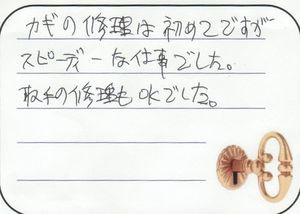 カギの修理は初めてですが
スピーディーな仕事でした。
取手の修理もOKでした。